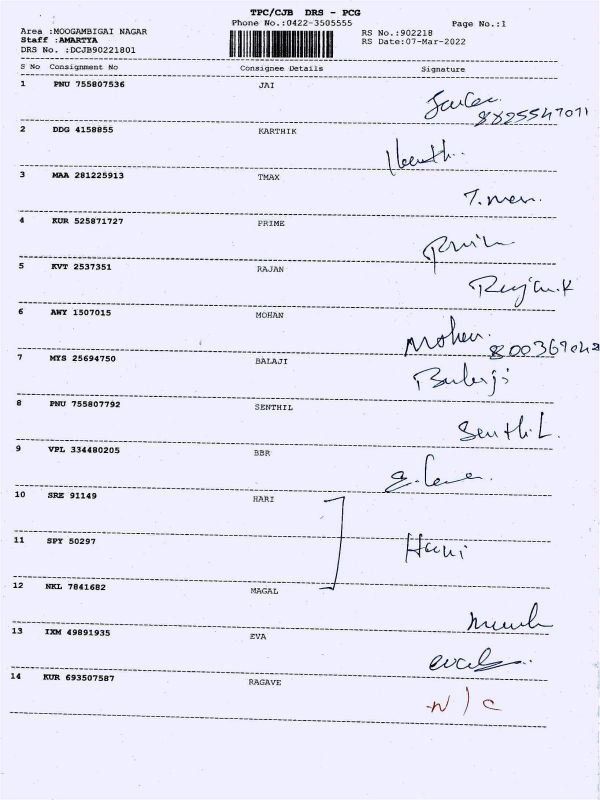 TPC/CJB DRS - PCG
Phone No.:0422-3505555
Page No.:1
Area :MOOGAMBIGAI NAGAR
RS No.:902218
Staff :AMARTYA
RS Date:07-Mar-2022
DRS No. :DCJB90221801
S No Consignment No Consignee Details Signature
1 PNU 755807536 JAI
8825547071
2 DDG 4158855 KARTHIK
3 MAA 281225913 TMAX
T.men.
4 KUR 525871727 PRIME
5 KVT 2537351 RAJAN
Rajan.K
6 AWY 1507015 MOHAN
Mohan.
7 MYS 25694750 BALAJI
Balaji
8 PNU 755807792 SENTHIL
Senthil.
9 VPL 334480205 BBR
10 SRE 91149 HARI
11 SPY 50297
Hari
12 NKL 7841682 MAGAL
13 IXM 49891935 EVA
14 KUR 693507587 RAGAVE
N/C